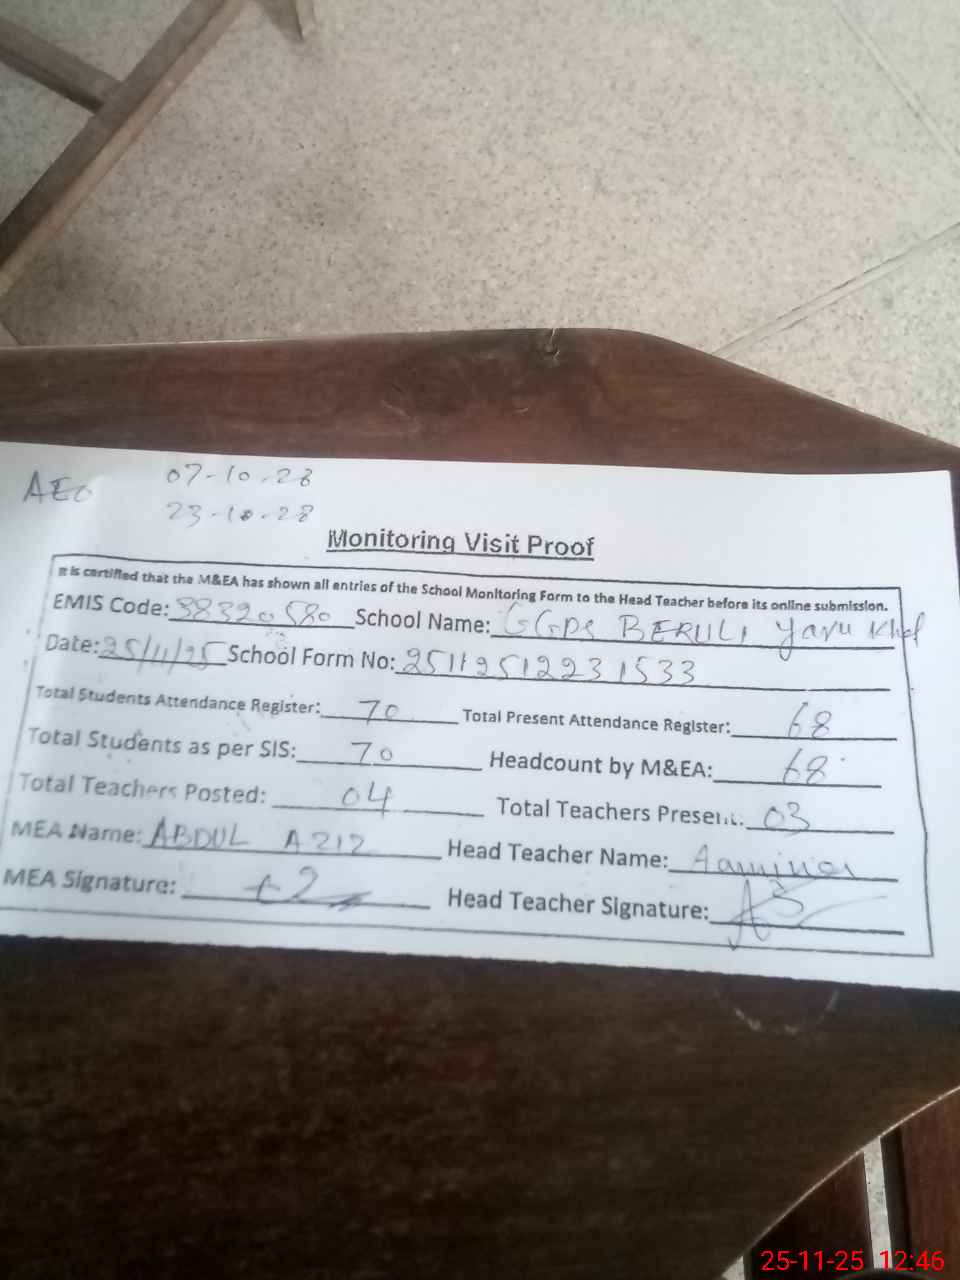 AEO 07-10-28
23-10-28
Monitoring Visit Proof
It is certified that the M&EA has shown all entries of the School Monitoring Form to the Head Teacher before its online submission.
EMIS Code: 38320580 School Name: GGPS BERULI Yaru Khel
Date: 25/11/25 School Form No: 25112512231533
Total Students Attendance Register: 70 Total Present Attendance Register: 68
Total Students as per SIS: 70 Headcount by M&EA: 68
Total Teachers Posted: 04 Total Teachers Present: 03
MEA Name: ABDUL AZIZ Head Teacher Name:
MEA Signature: Head Teacher Signature:
25-11-25 12:46